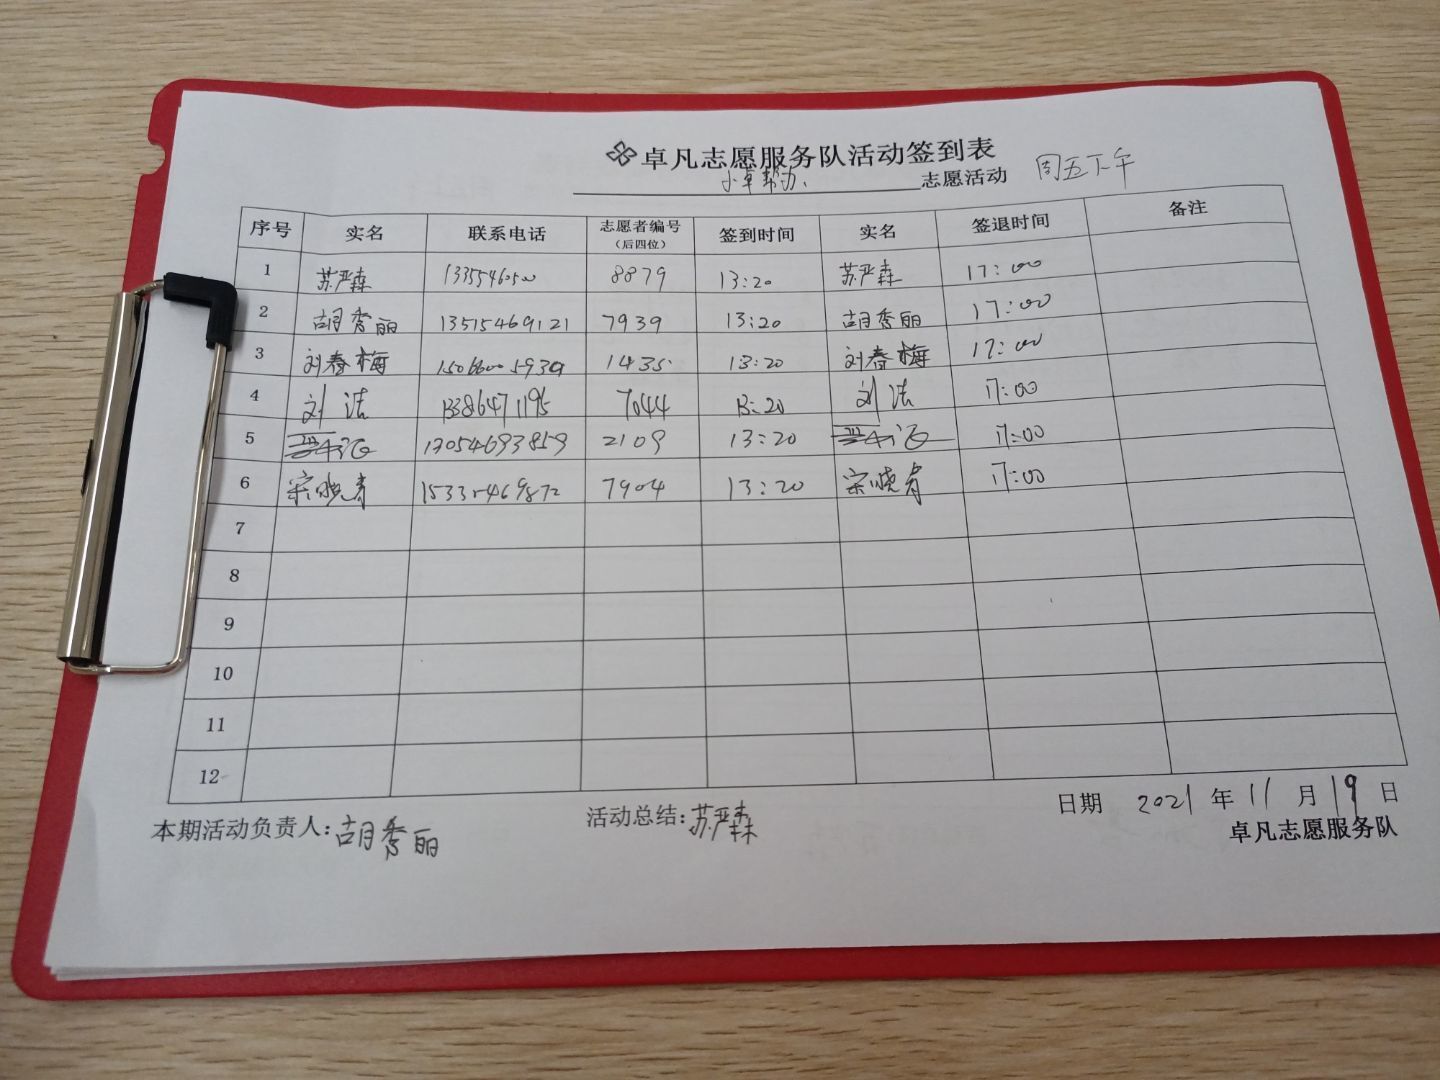 卓凡志愿服务队活动签到表
小卓帮办 志愿活动 周五下午
序号 实名 联系电话 志愿者编号（后四位） 签到时间 实名 签退时间 备注
1 苏严森 8879 13:20 苏严森 17:00
2 胡秀丽 13515469121 7939 13:20 胡秀丽 17:00
3 刘春梅 1435 13:20 刘春梅 17:00
4 刘洁 13386471195 7044 13:20 刘洁 17:00
5 13054693859 2109 13:20 17:00
6 宋晓青 15335469872 7904 13:20 宋晓青 17:00
7
8
9
10
11
12
本期活动负责人：胡秀丽 活动总结：苏严森 日期 2021 年 11 月 19 日
卓凡志愿服务队